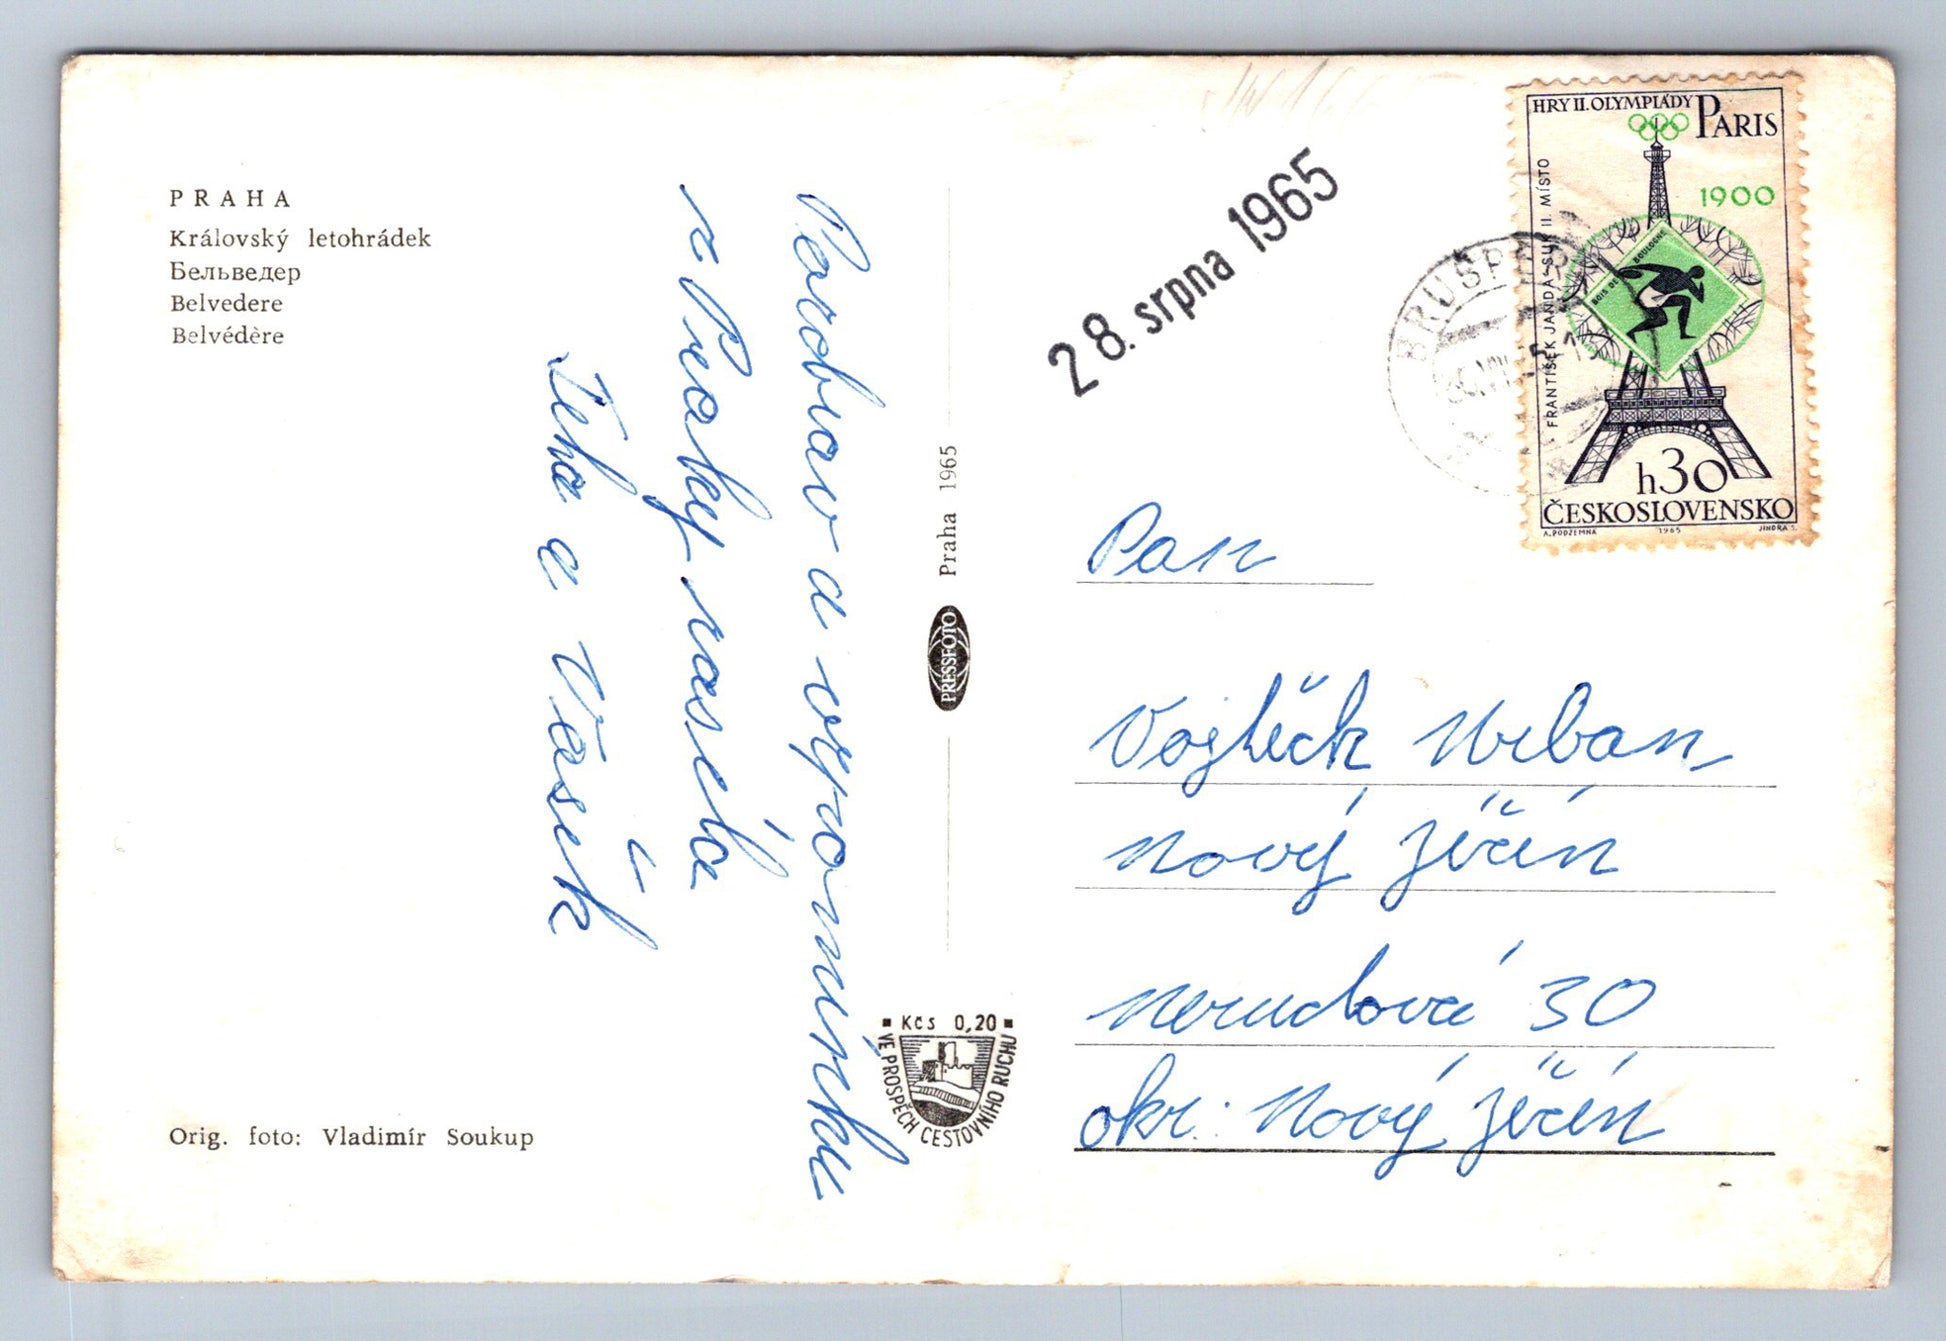 PRAHA
Královský letohrádek
Бельведер
Belvedere
Belvédère
Pozdrav a vzpomínku
z Prahy zasílá
Jeňa a Vašík
Orig. foto: Vladimír Soukup
Praha 1965
PRESSFOTO
Kčs 0,20
VE PROSPĚCH CESTOVNÍHO RUCHU
28. srpna 1965
BRUŠPERK
HRY II. OLYMPIÁDY PARIS
1900
FRANTIŠEK JANDA-SUK II. MÍSTO
BOIS DE BOULOGNE
h30
ČESKOSLOVENSKO
A. PODZEMNÁ 1965 JINDRA S.
Pan
Vojtěch Urban
Nový Jičín
Nerudová 30
okr. Nový Jičín